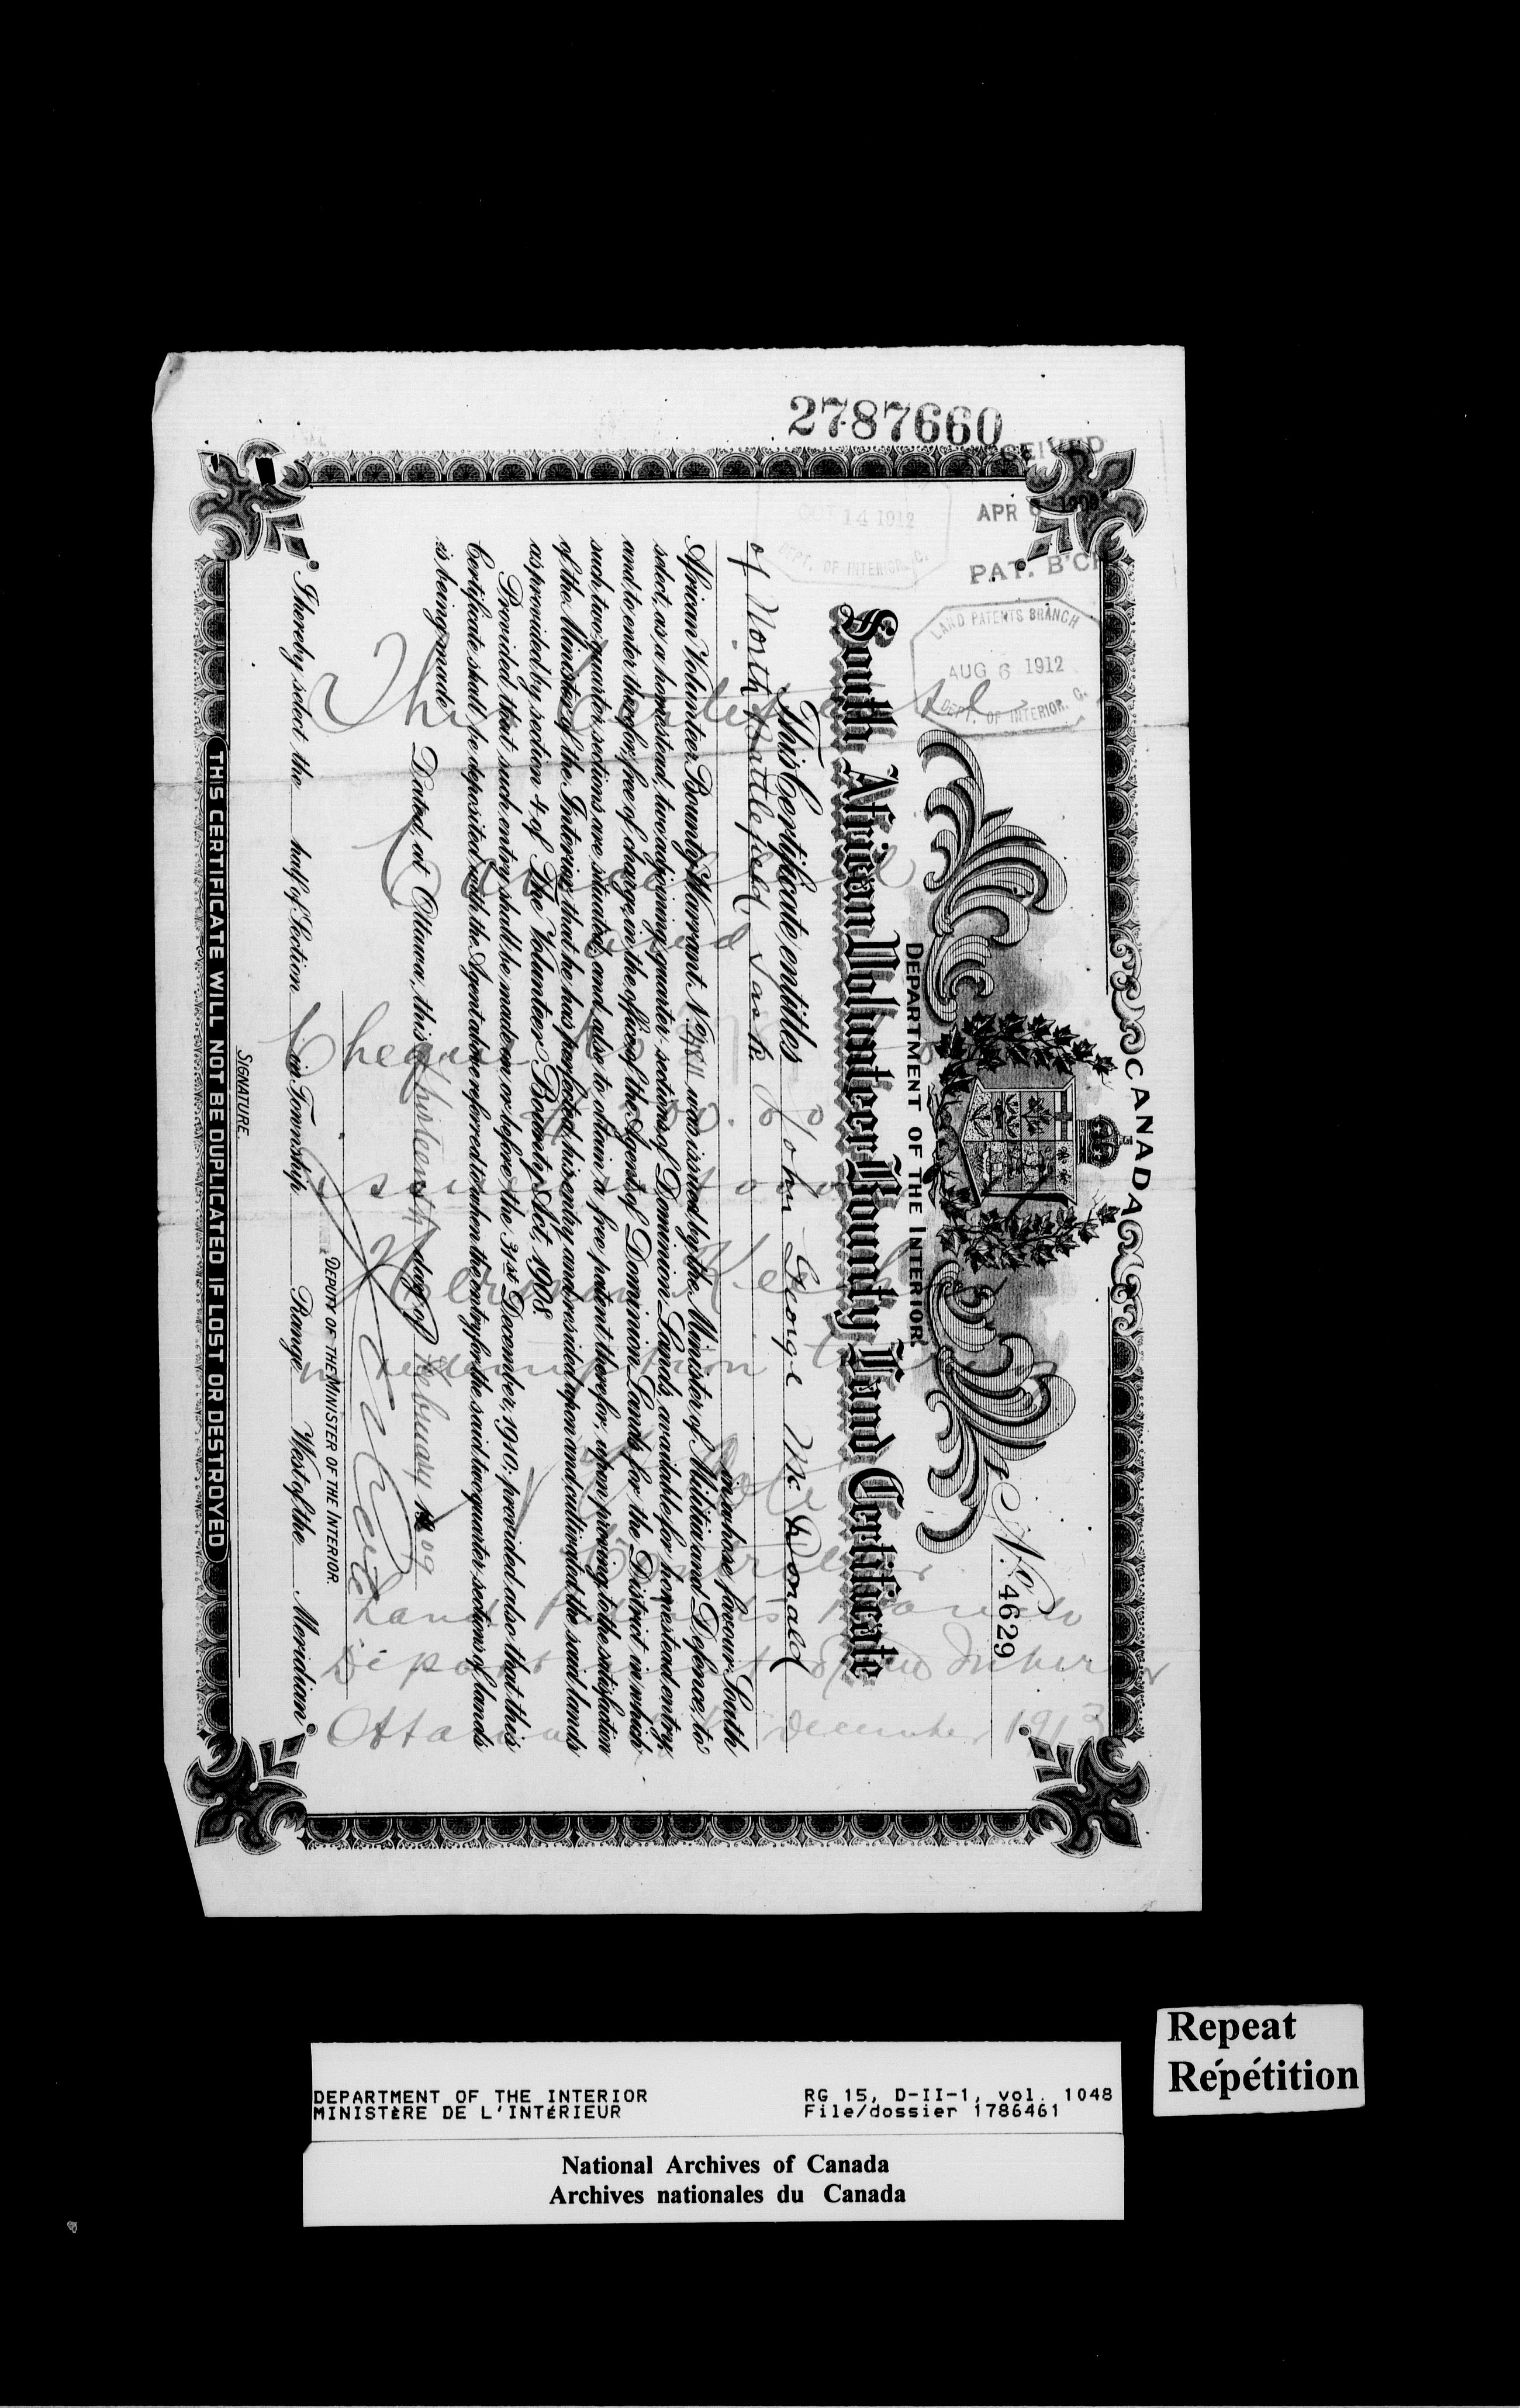 2787660
RECEIVED
APR 6 1909
PAT. B'CH
OCT 14 1912
DEPT. OF INTERIOR. C.
LAND PATENTS BRANCH
AUG 6 1912
DEPT. OF INTERIOR. C.
CANADA
No. 4629
DEPARTMENT OF THE INTERIOR
South African Volunteer Bounty Land Certificate
This Certificate entitles John George McDonald
of North Battleford, Sask in whose favour South
African Volunteer Bounty Warrant No. was issued by the Minister of Militia and Defence, to
select, as a homestead, two adjoining quarter-sections of Dominion Lands available for homestead entry,
and to enter therefor, free of charge, in the office of the Agent of Dominion Lands for the District in which
such two quarter-sections are situated, and also to obtain a free patent therefor, upon proving to the satisfaction
of the Minister of the Interior that he has perfected his entry and resided upon and cultivated the said lands
as provided by section 4 of The Volunteer Bounty Act, 1908.
Provided that such entry shall be made on or before the 31st December, 1910; provided also that this
Certificate shall be deposited with the Agent above referred to when the entry for the said two quarter-sections of lands
is being made.
Dated at Ottawa, this day of February 1909
DEPUTY OF THE MINISTER OF THE INTERIOR.
I hereby select the half of Section in Township Range West of the Meridian
SIGNATURE
THIS CERTIFICATE WILL NOT BE DUPLICATED IF LOST OR DESTROYED
and
Cheque
Herman
in redemption
Land Patents Branch
Department of the Interior
Ottawa December 1913
Repeat
Répétition
DEPARTMENT OF THE INTERIOR RG 15, D-II-1, vol. 1048
MINISTÈRE DE L'INTÉRIEUR File/dossier 1786461
National Archives of Canada
Archives nationales du Canada